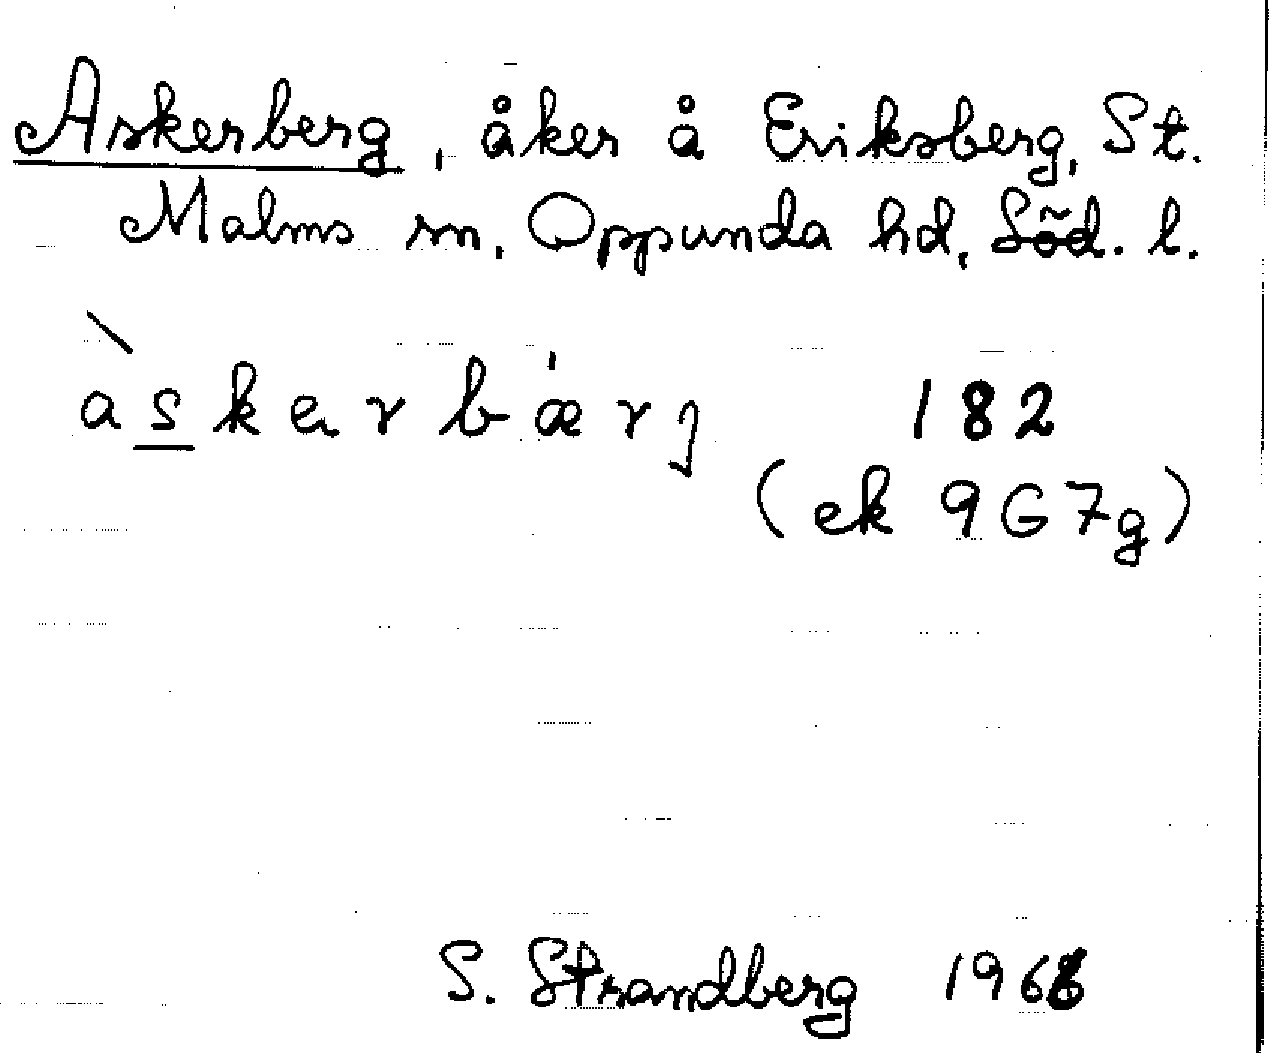 Askerberg, åker å Eriksberg, St.
Malms sn, Oppunda hd, Söd. l.
àskerbǽrj 182
(ek 9G7g)
S. Strandberg